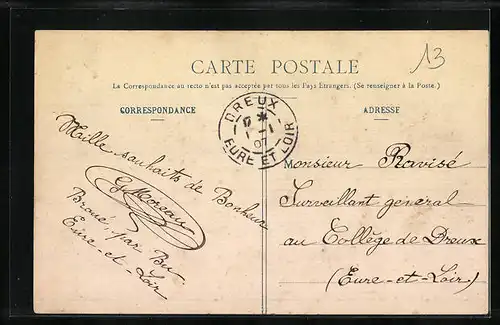 13
CARTE POSTALE
La Correspondance au recto n'est pas acceptée par tous les Pays Etrangers. (Se renseigner à la Poste.)
CORRESPONDANCE
ADRESSE
DREUX
1 - 1
07
EURE ET LOIR
Mille souhaits de Bonheur
G Moreau
Broué, par Bu
Eure-et-Loir
Monsieur Ravisé
Surveillant général
au Collège de Dreux
(Eure-et-Loir)